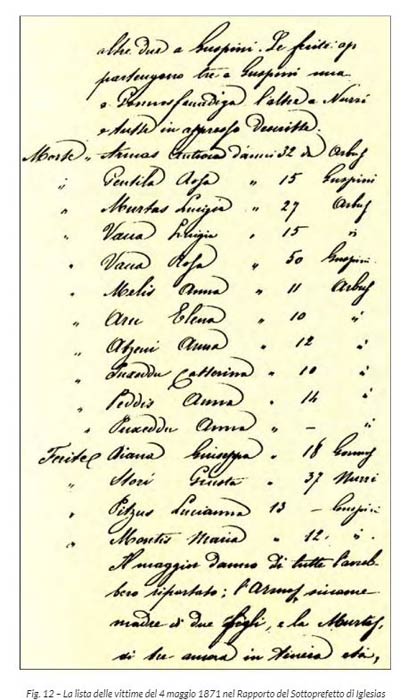 altre due a Guspini. Le ferite ap
partengono tre a Guspini una
a Gonnosfanadiga l'altra a Nurri
e tutte in appresso descritte.
Morte " Armas Antioca d'anni 32 di Arbus
" Pentila Rosa " 15 Guspini
" Murtas Luigia " 27 Arbus
" Vacca Luigia " 15 "
" Vacca Rosa " 50 Guspini
" Melis Anna " 11 Arbus
" Aru Elena " 10 "
" Atzeni Anna " 12 "
" Puxeddu Catterina " 10 "
" Peddis Anna " 14 "
" Puxeddu Anna " — "
Ferite Diana Giuseppa " 18 Gonnos
" Stori Giusta " 37 Nurri
" Pitzus Lucianna 13 — Guspini
" Montis Maria " 12 "
Il maggior danno di tutte l'avreb-
bero riportato; l'Armas, siccome
madre di due figli, e la Murtas,
di tre ancora in tenera età,
Fig. 12 – La lista delle vittime del 4 maggio 1871 nel Rapporto del Sottoprefetto di Iglesias